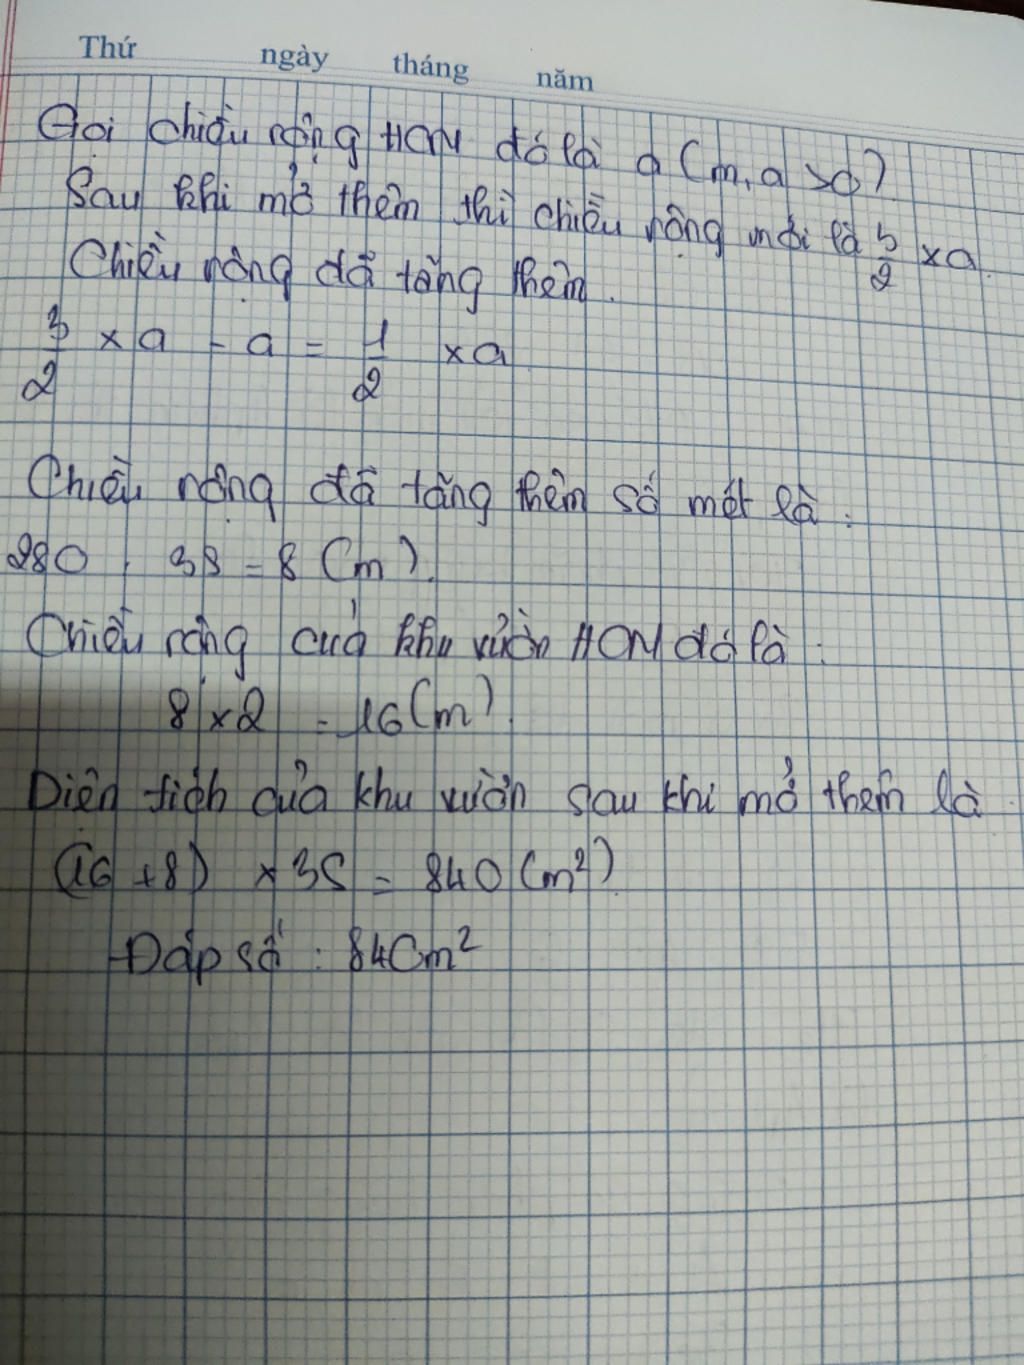 Thứ ngày tháng năm
Gọi chiều rộng HCN đó là a (m, a > 0)
Sau khi mở thêm thì chiều rộng mới là 3/2 × a.
Chiều rộng đã tăng thêm.
3/2 × a - a = 1/2 × a
Chiều rộng đã tăng thêm số mét là :
280 : 35 = 8 (m).
Chiều rộng của khu vườn HCN đó là :
8 × 2 = 16 (m).
Diện tích của khu vườn sau khi mở thêm là
(16 + 8) × 35 = 840 (m²).
Đáp số : 840m²